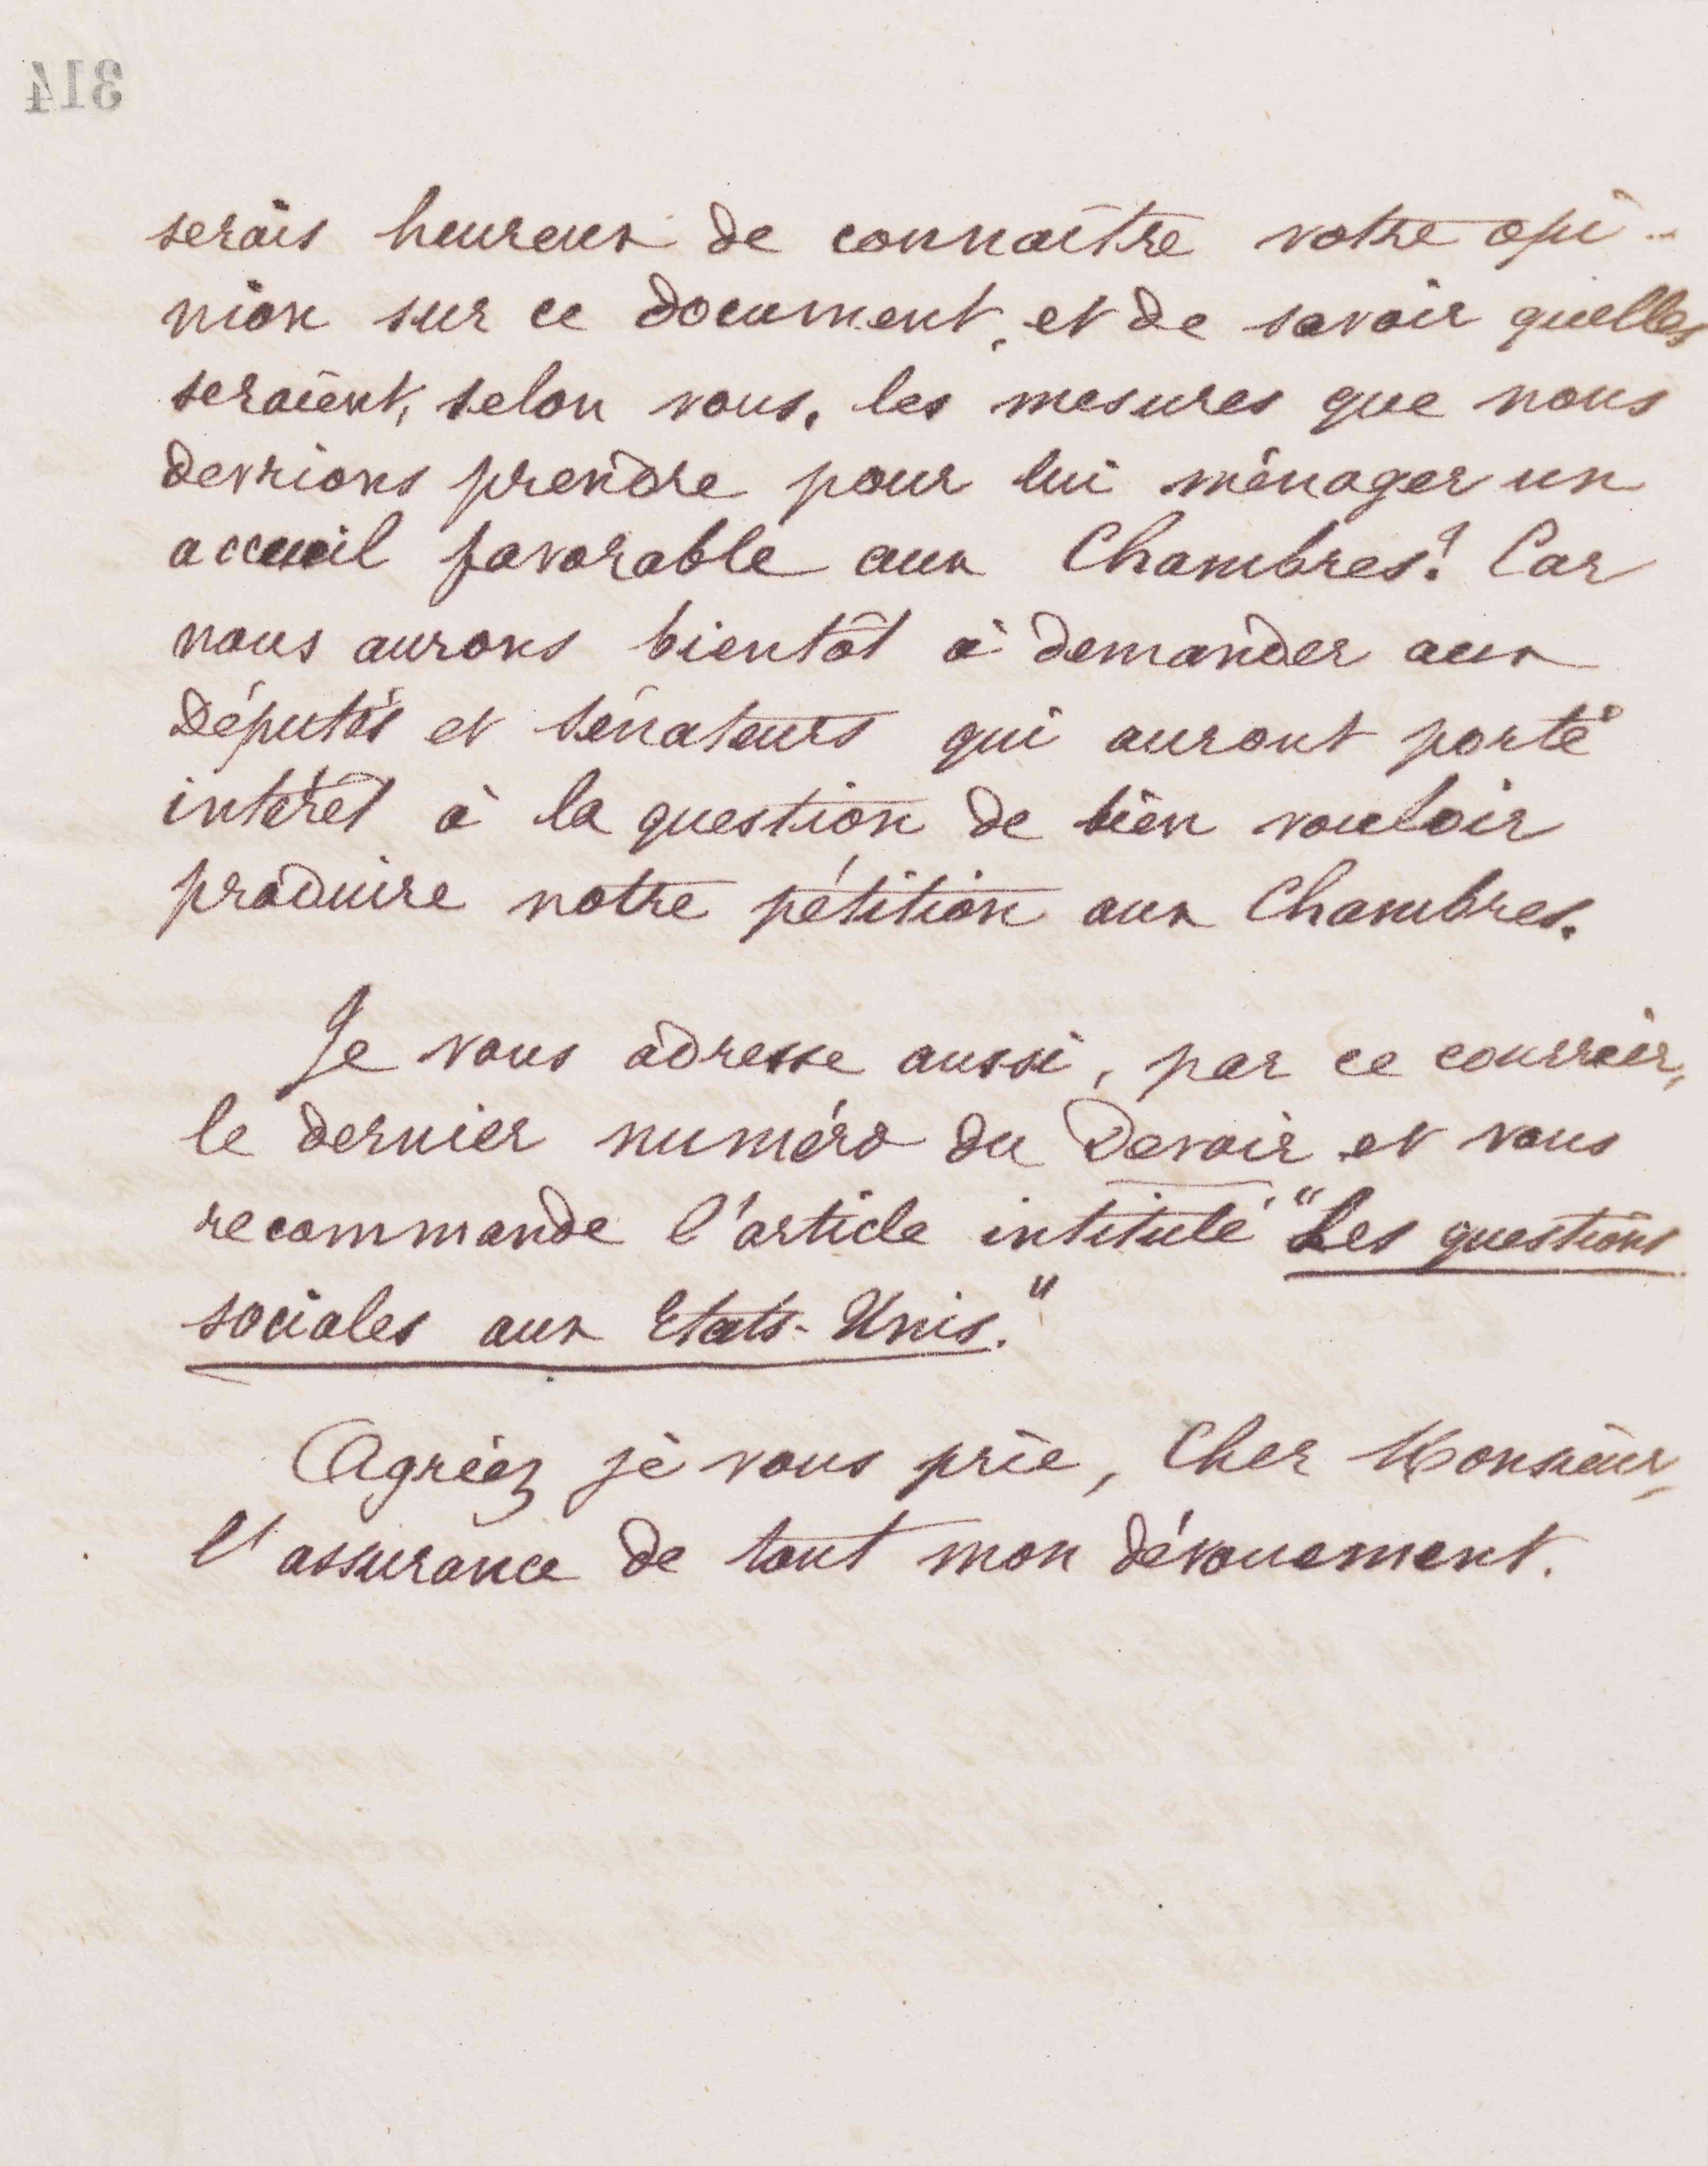 314
serais heureux de connaître votre opi-
nion sur ce document, et de savoir quelles
seraient, selon vous, les mesures que nous
devrions prendre pour lui ménager un
accueil favorable aux Chambres? Car
nous aurons bientôt à demander aux
Députés et sénateurs qui auront porté
intérêt à la question de bien vouloir
produire notre pétition aux Chambres.
Je vous adresse aussi, par ce courrier,
le dernier numéro du Devoir et vous
recommande l'article intitulé "Les questions
sociales aux Etats-Unis."
Agréez je vous prie, Cher Monsieur,
l'assurance de tout mon dévouement.